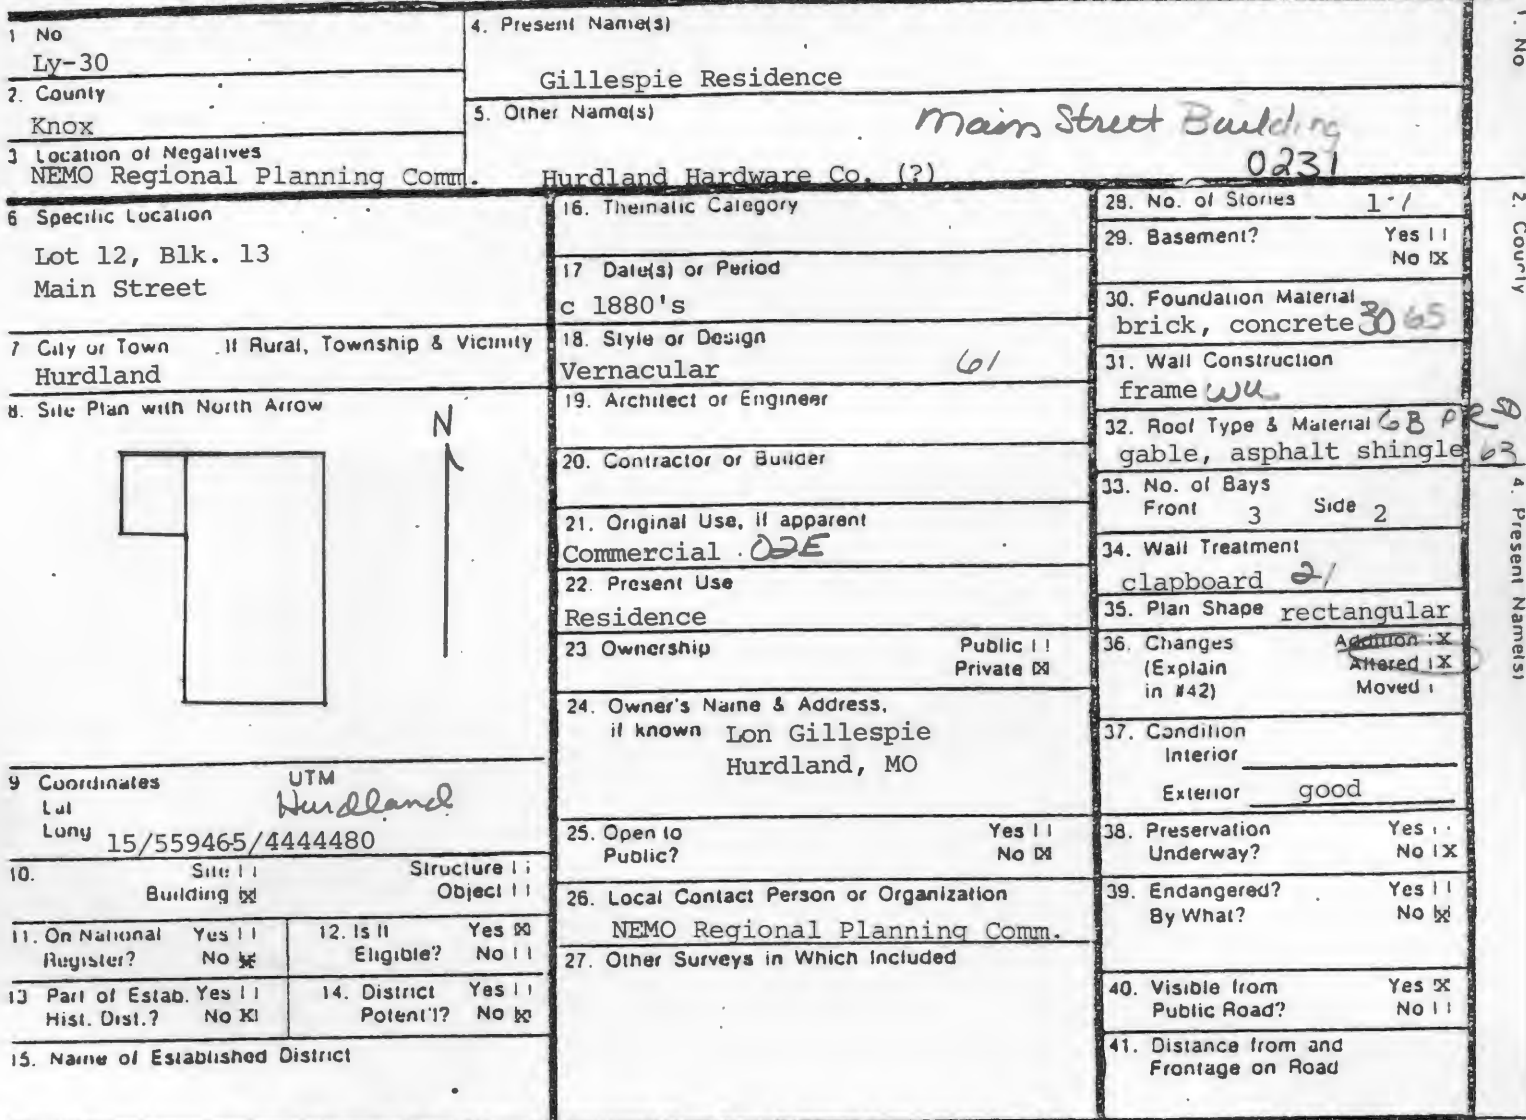 1 No
Ly-30
2. County
Knox
3 Location of Negatives
NEMO Regional Planning Comm.
4. Present Name(s)
Gillespie Residence
5. Other Name(s)
Main Street Building
0231
Hurdland Hardware Co. (?)
6 Specific Location
Lot 12, Blk. 13
Main Street
7 City or Town If Rural, Township & Vicinity
Hurdland
8. Site Plan with North Arrow
N
9 Coordinates UTM
Lat
Hurdland
Long 15/559465/4444480
10. Site Structure
Building X Object
11. On National Yes
Register? No X
12. Is It Yes X
Eligible? No
13 Part of Estab. Yes
Hist. Dist.? No X
14. District Yes
Potent'l? No X
15. Name of Established District
16. Thematic Category
17 Date(s) or Period
c 1880's
18. Style or Design
Vernacular 61
19. Architect or Engineer
20. Contractor or Builder
21. Original Use, if apparent
Commercial 02E
22. Present Use
Residence
23 Ownership Public
Private X
24. Owner's Name & Address,
if known Lon Gillespie
Hurdland, MO
25. Open to Yes
Public? No X
26. Local Contact Person or Organization
NEMO Regional Planning Comm.
27. Other Surveys in Which Included
28. No. of Stories 1
29. Basement? Yes
No X
30. Foundation Material
brick, concrete 30 65
31. Wall Construction
frame
32. Roof Type & Material GB
gable, asphalt shingle 63
33. No. of Bays
Front 3 Side 2
34. Wall Treatment
clapboard 21
35. Plan Shape rectangular
36. Changes Addition X
(Explain Altered X
in #42) Moved
37. Condition
Interior
Exterior good
38. Preservation Yes
Underway? No X
39. Endangered? Yes
By What? No X
40. Visible from Yes X
Public Road? No
41. Distance from and
Frontage on Road
1. No
2. County
4. Present Name(s)